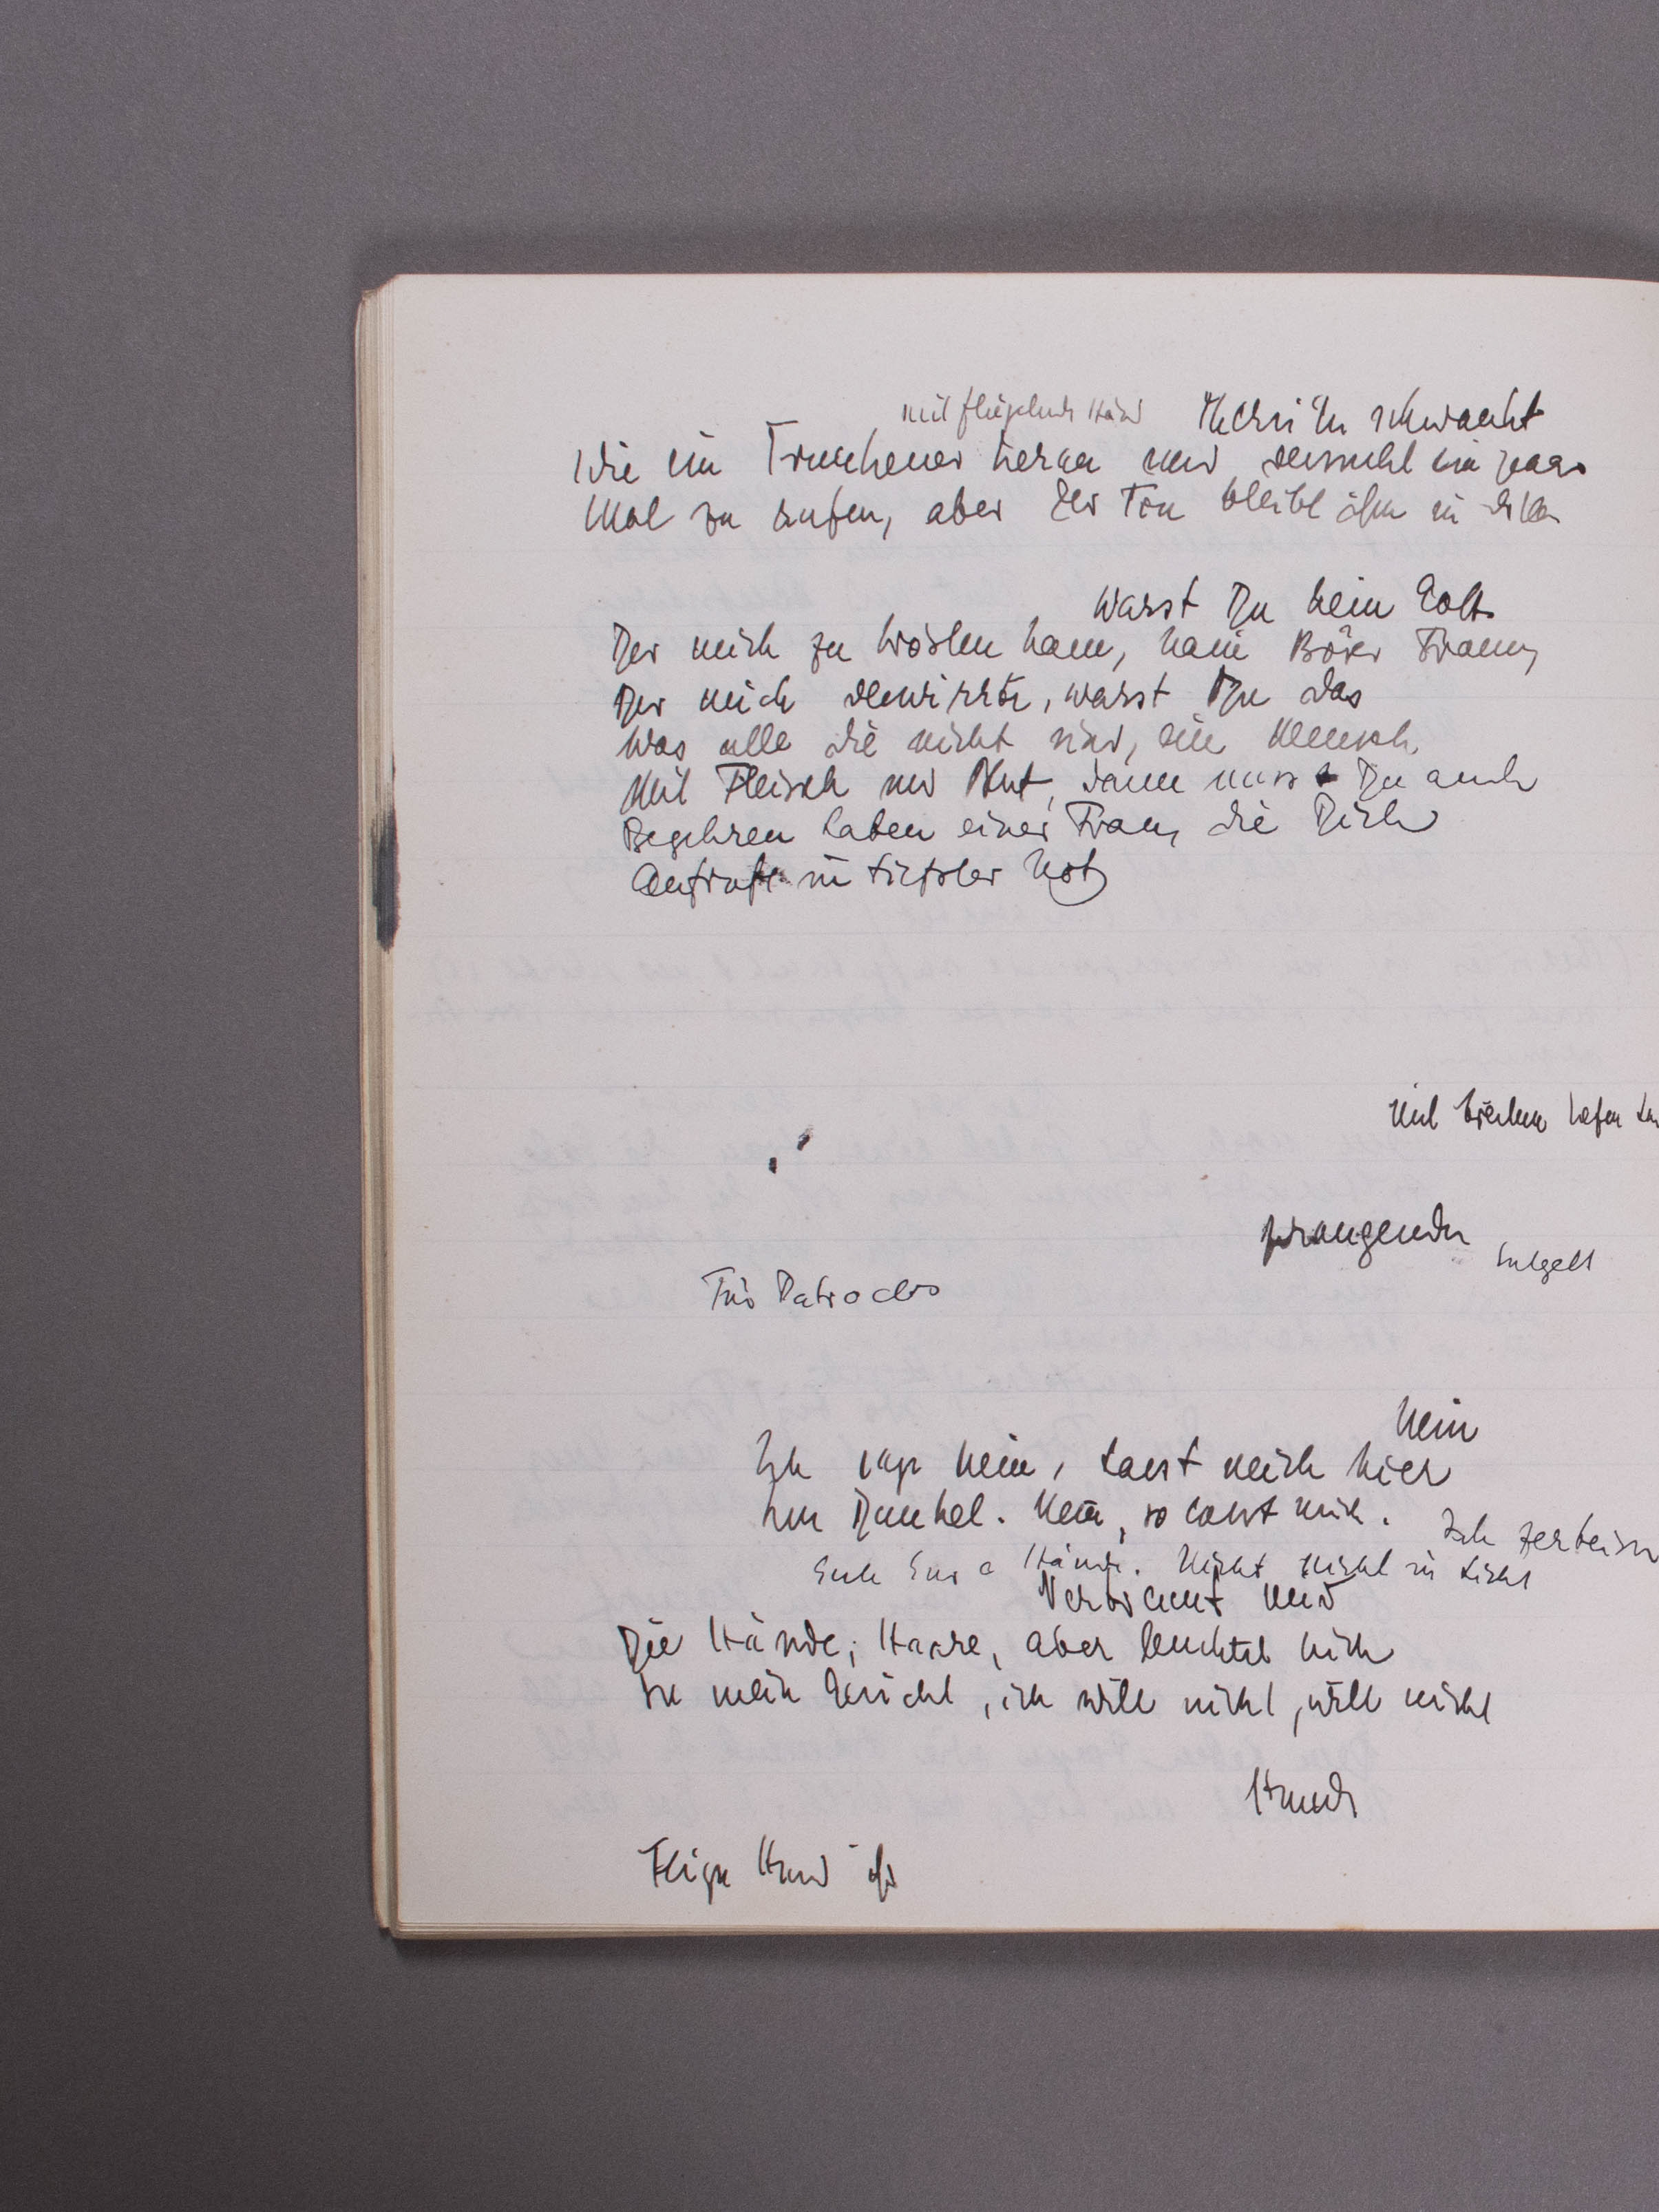 mit Hand
wie ein Trunkener heran und versucht ein paar
Mal zu rufen, aber der Ton bleibt ihm in der
Warst Du kein Gott
Der mich zu trösten kam, kein Böser Traum,
Der mich verwirrte, warst Du das
Was alle die nicht sind, ein Mensch
Mit Fleisch und Blut, dann musst Du auch
Begehren haben einer Frau, die Dich
Anruft in tiefster Not
Mit
prangender
Für Patroclos
Nein
Ich sage Nein, Lasst mich hier
Im Dunkel. Nein, so lasst mich. Ich zerbeisse
Euch Eure Hände. Nicht nicht in Licht
Verbrennt mir
Die Hände, Haare, aber leuchtet nicht
In mein Gesicht, ich will nicht, will nicht
Hunde
Hund